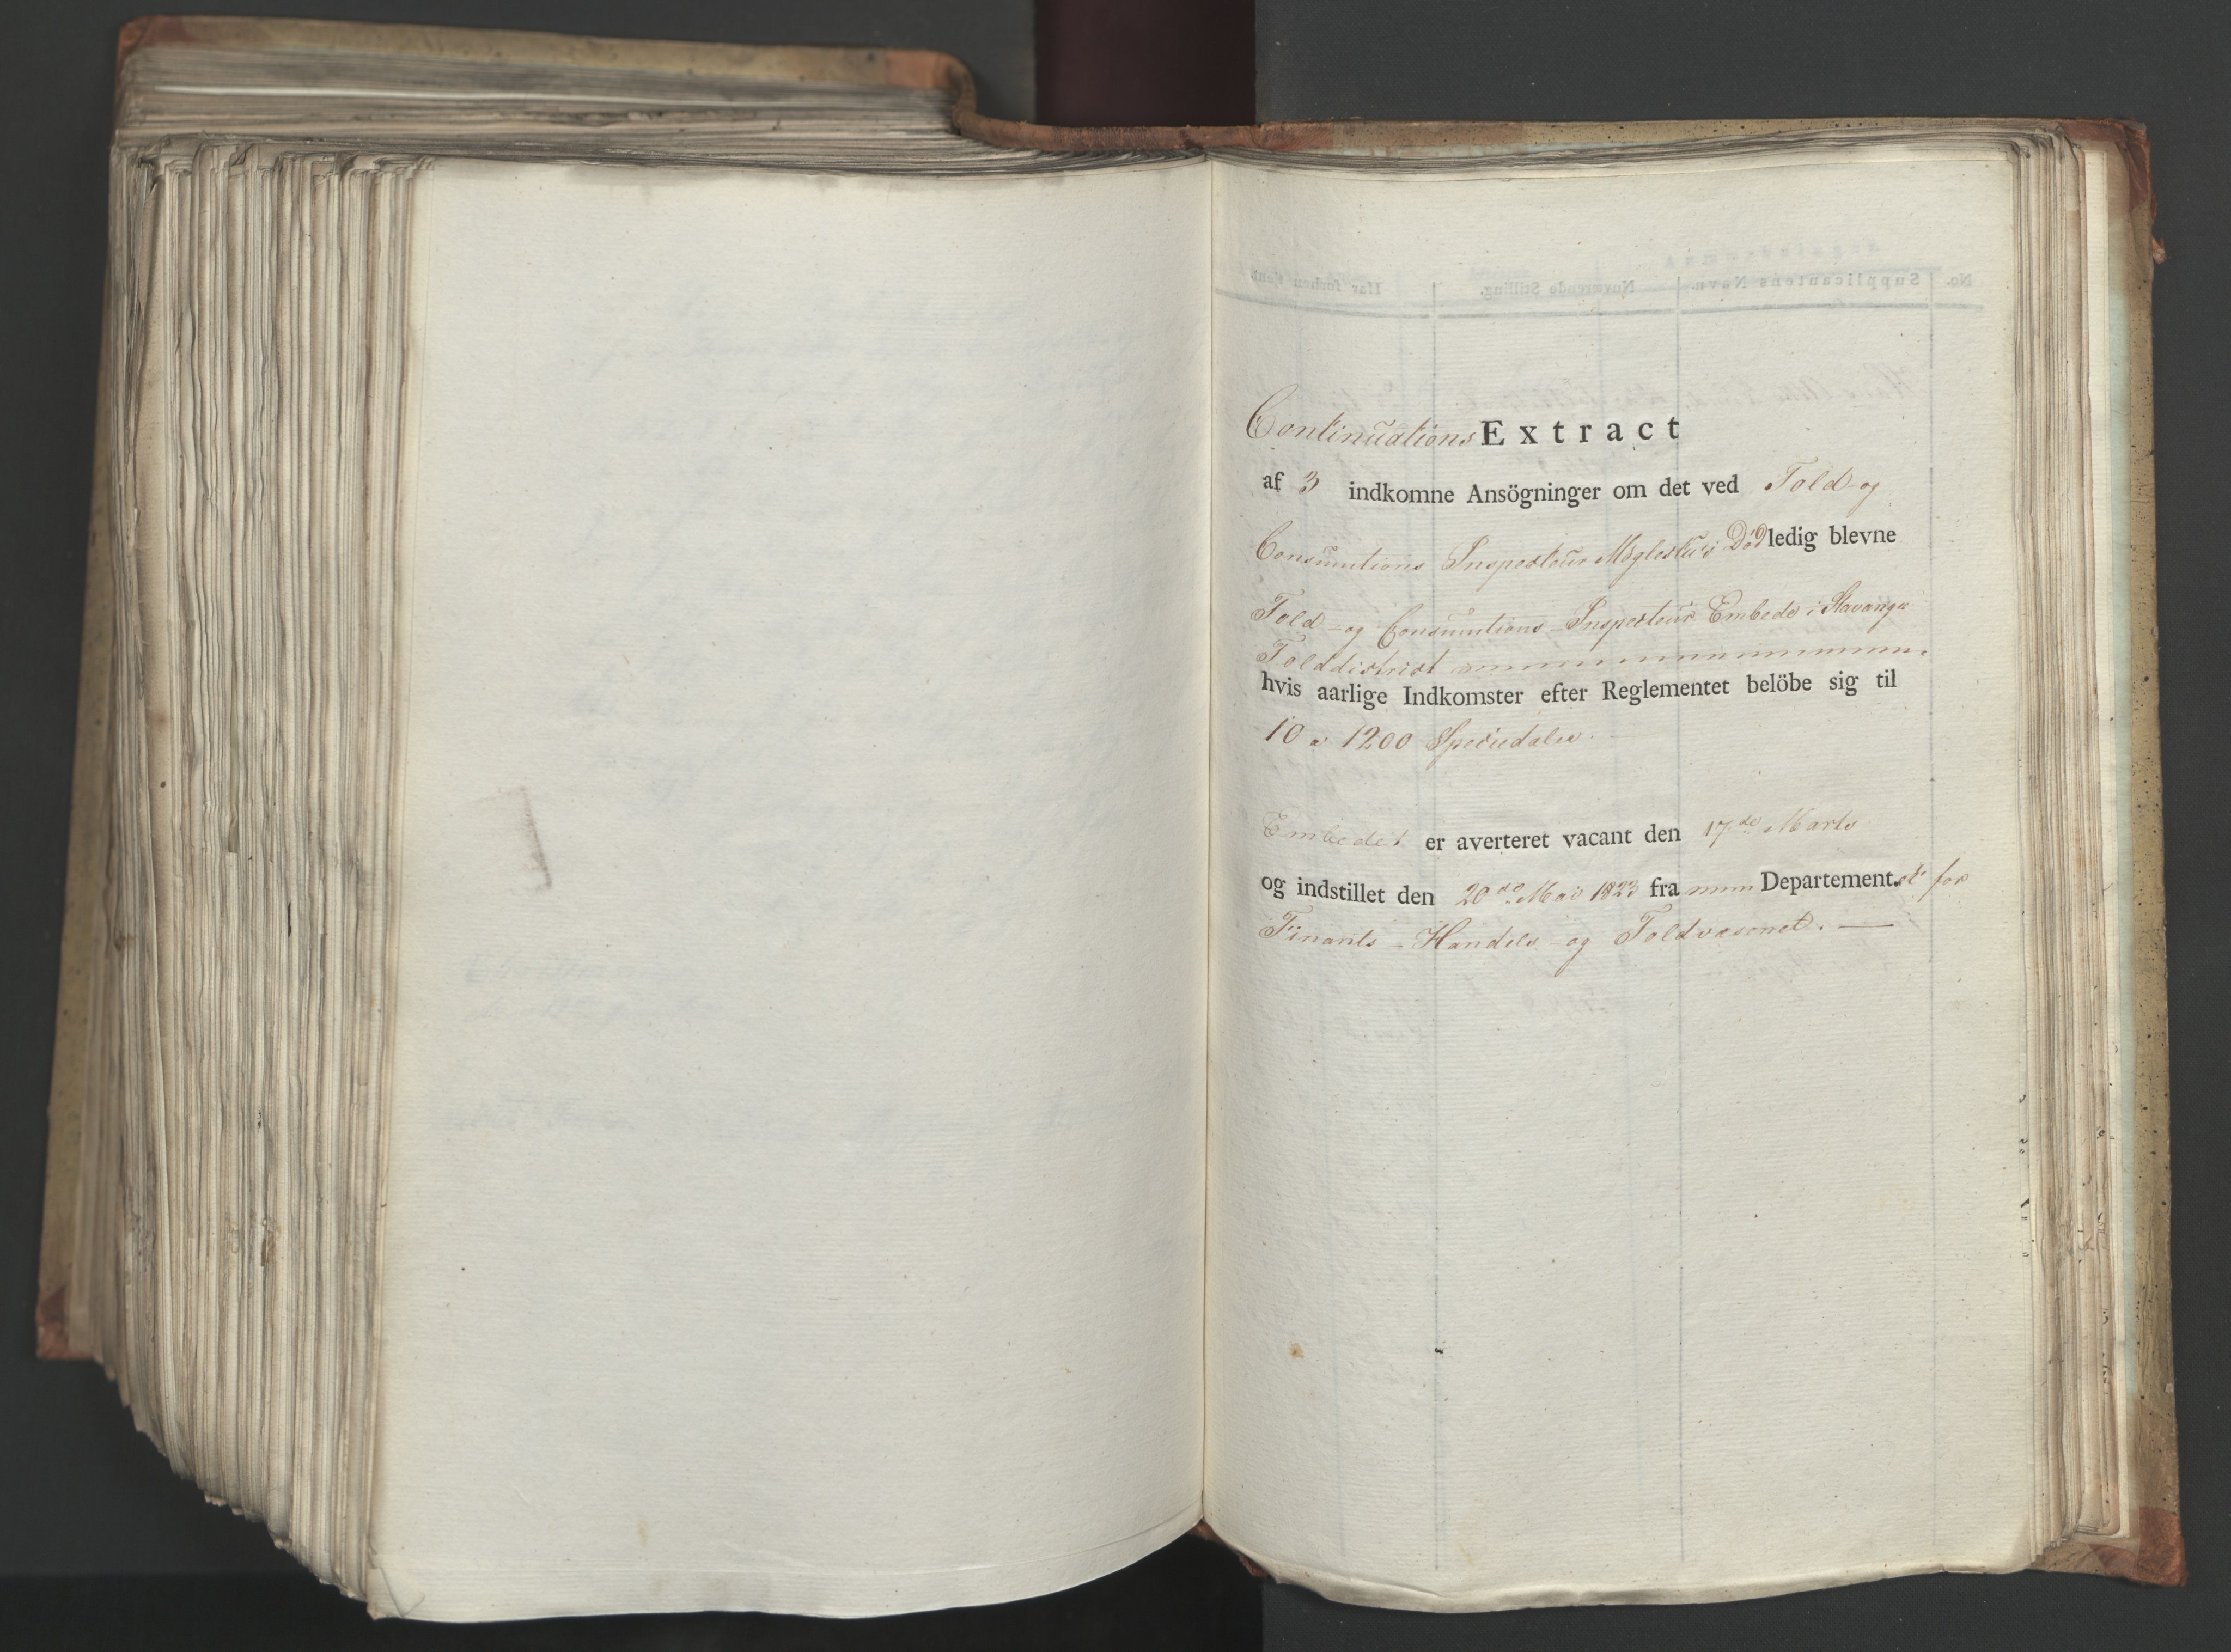 Continuations Extract
af 3 indkomne Ansögninger om det ved Told- og
Consumtions Inspecteur Møglestu's Død ledig blevne
Told- og Consumtions-Inspecteur Embede i Stavanger
Tolddistrict
hvis aarlige Indkomster efter Reglementet belöbe sig til
10 a 1200 Speciedaler.
Embedet er averteret vacant den 17de Marts
og indstillet den 20de Mai 1823 fra Departementet for
Finants- Handels- og Toldvæsenet. —
No. Supplicantens Navn. Nuværende Stilling. Har forhen tjent